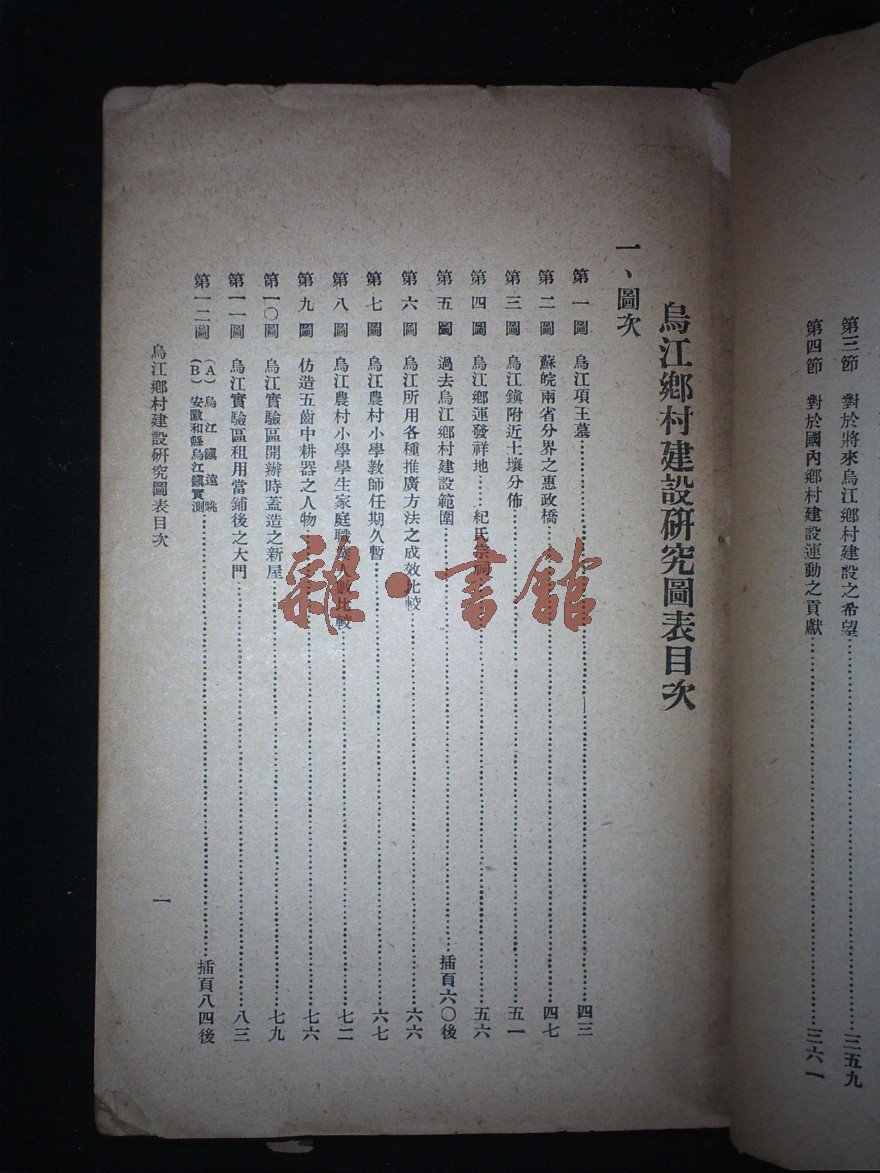 第三節　對於將來烏江鄉村建設之希望……三五九
第四節　對於國內鄉村建設運動之貢獻……三六一
烏江鄉村建設研究圖表目次
一、圖次
第一圖　烏江項王墓……四三
第二圖　蘇皖兩省分界之惠政橋……四七
第三圖　烏江鎮附近土壤分佈……五一
第四圖　烏江鄉運發祥地……紀氏宗祠……五六
第五圖　過去烏江鄉村建設範圍……插頁六〇後
第六圖　烏江所用各種推廣方法之成效比較……六六
第七圖　烏江農村小學教師任期久暫……六七
第八圖　烏江農村小學學生家庭職業人數比較……七二
第九圖　仿造五齒中耕器之人物……七六
第一〇圖　烏江實驗區開辦時蓋造之新屋……七九
第一一圖　烏江實驗區租用當鋪後之大門……八三
第一二圖　(A)烏江鎮遠眺
(B)安徽和縣烏江鎮實測……插頁八四後
烏江鄉村建設研究圖表目次
一
雜·書館